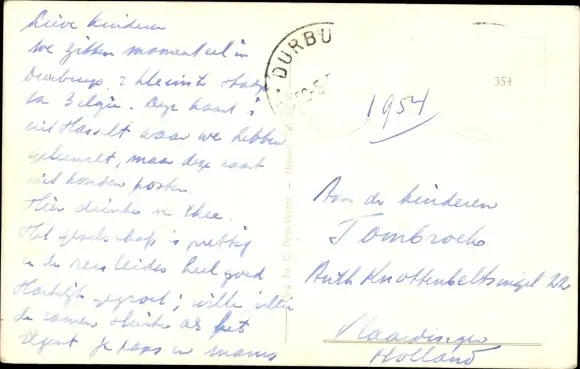 Lieve kinderen
we zitten momenteel in
Durbuy, 't kleinste stadje
in België. Deze kaart is
uit Hasselt waar we hebben
geluncht, maar deze kaart
niet konden posten.
Hier drinken we thee.
Het gezelschap is prettig
en de reisleider heel goed
Hartelijk gegroet; willen jullie
de ramen sluiten als het
regent je paps en mams
DURBU
354
1954
Aan de kinderen
Tombrock
Anth Knottenbeltsingel 22
Vlaardingen
Holland